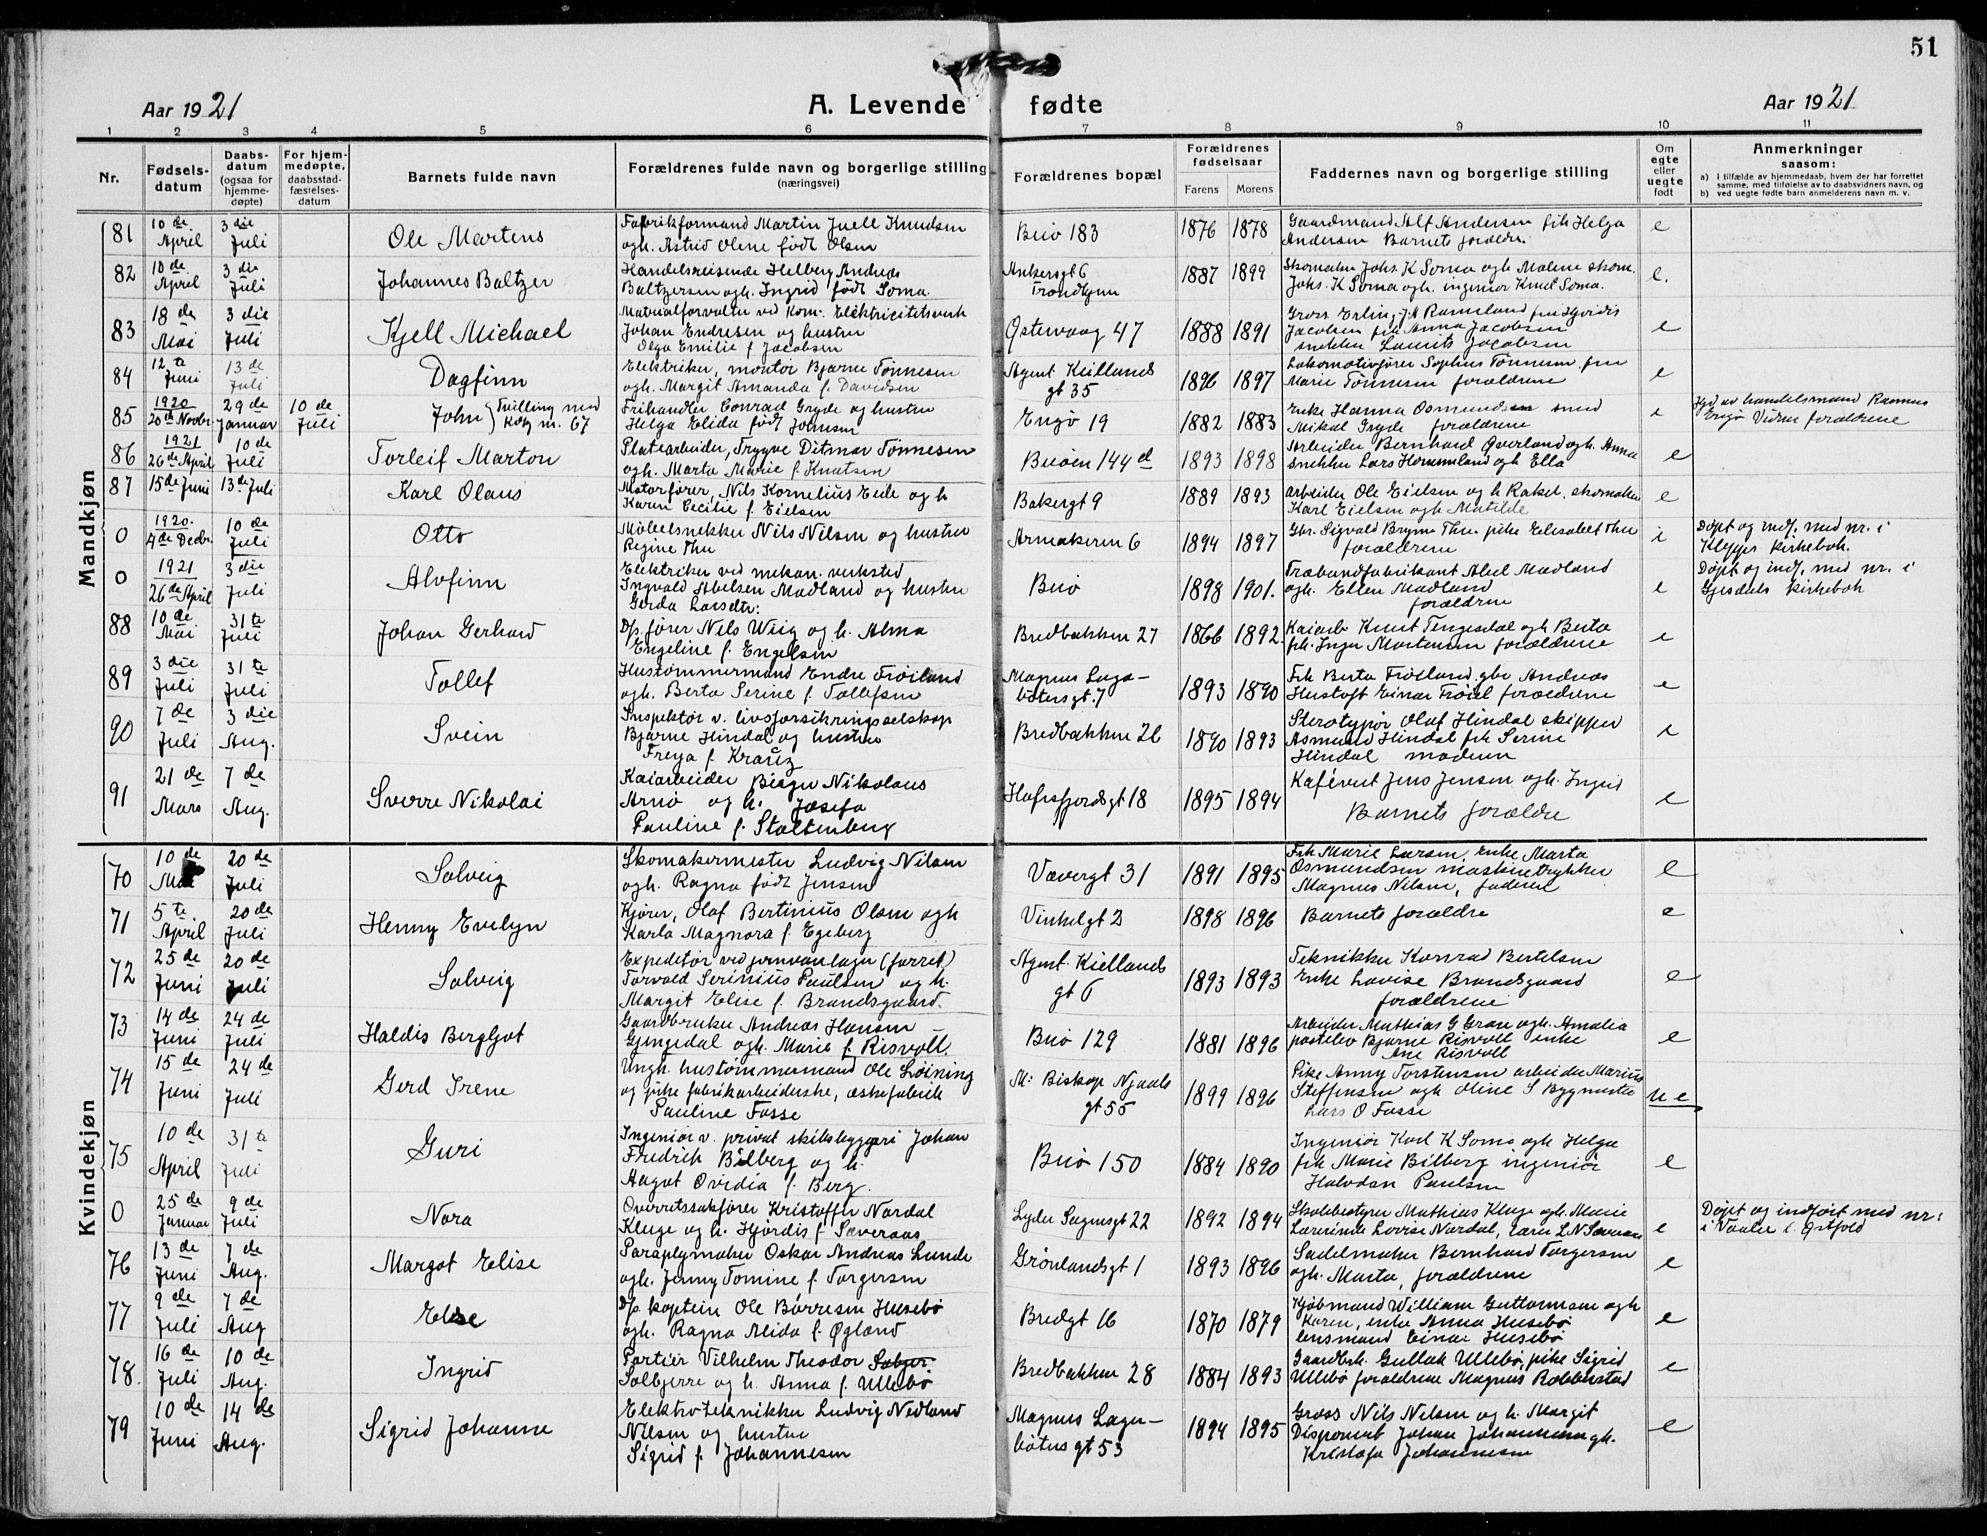 51
Aar 1921 A. Levende fødte Aar 1921
1 2 3 4 5 6 7 8 9 10 11
Nr. Fødsels-datum Daabs-datum (ogsaa for hjemme-døpte) For hjem-medøpte, daabsstad-fæstelses-datum Barnets fulde navn Forældrenes fulde navn og borgerlige stilling (næringsvei) Forældrenes bopæl Forældrenes fødselsaar Farens Morens Faddernes navn og borgerlige stilling Om egte eller uegte født Anmerkninger saasom:
a) I tilfælde av hjemmedaab, hvem der har forrettet samme, med tilføielse av to daabsvidners navn, og
b) ved uegte fødte barn anmelderens navn m. v.
Mandkjøn
81 10de April 3die Juli Ole Martens Fabrikformand Martin Juell Knudsen ogh. Astrid Olene født Olsen Buø 183 1876 1878 Gaardmand Alf Andersen frk Helga Andersen Barnets forældre. e
82 10de April 3die Juli Johannes Baltzer Handelsreisende Helberg Andreas Baltzersen ogh. Ingrid født Soma Ankersgt 6 Trondhjem 1887 1899 Skomaker Johs. K Soma ogh Malene skom. Johs. K Soma ogh. ingeniør Knut Soma. e.
83 18de Mai 3die Juli Kjell Michael Materialforvalter ved Kom. Elektricitetsverk Johan Endresen og hustru Olga Emilie f. Jacobsen Østervaag 47 1888 1891 Gross Erling Rameland Jacobsen frk Anna Jacobsen snekker Laurits Jacobsen e
84 12te Juni 13de Juli Dagfinn Elektriker, montør Bjarne Tønnesen ogh. Margit Amanda f. Davidsen Agent Kiellands gt 35 1896 1897 Lokomotivfører Sophus Tønnesen fru Marie Tønnesen forældrene e
85 1920 20de Novbr. 29de Januar 10de Juli John (Tvilling med Kv. nr. 67 Frihandler, Conrad Gryde og hustru Helga Elida født Jonnsen Engø 19 1882 1883 Enke Hanna Osmundsen smed Mikal Gryde forældrene e Hjd av handelsmand Rasmus Engø Vidner forældrene
86 1921 26de April 10de Juli Torleif Marton Platearbeider, Trygve Ditmar Tønnesen ogh. Marta Marie f. Knutsen Buøen 144d 1893 1898 Arbeider Bernhard Øverland ogh. Anna snekker Lars Hommeland ogh Ella e
87 15de Juni 13de Juli Karl Olaus Motorfører, Nils Kornelius Eide og h Karen Cecilie f. Eielsen Bakergt 9 1889 1893 Arbeider Ole Eielsen og h Rakel. skomaker Karl Eielsen ogh Matilde e
0 1920. 4de Decbr. 10de Juli Otto Møbelsnekker Nils Nilsen og hustru Regine Thu Armakeren 6 1894 1897 Gbr. Sigvald Bryne Thu. pike Elisabet Thu forældrene i Døpt og indf. med nr. i Klepps kirkebok.
0 1921 26de April 3die Juli Alvfinn Elektriker ved mekan. verksted Ingvald Abelsen Madland og hustru Gerda Larsdtr: Buø 1898 1901. Træbandfabrikant Abel Madland ogh. Ellen Madland forældrene e Døpt og indf. med nr. i Gjesdals kirkebok
88 10de Mai 31te Juli Johan Gerhard D/s. fører Nils Wiig og h. Alma Engeline f. Engelsen Bredbakken 27 1866 1892 Kaiarb Knut Tengesdal ogh Berta frk. Inger Mortensen forældrene e
89 3die Juli 31te Juli Tollef Hustømmermand Endre Frøiland ogh. Berta Serine f. Tollefsen Magnus Laga-bøtersgt. 7 1893 1890 Frk Berta Frøiland gbr. Andreas Hustoft Einar Trøiel forældrene e
90 7de Juli 3die Aug. Svein Inspektør v. livsforsikringsselskap Bjarne Hindal og hustru Freya f. Krantz Bredbakken 26 1890 1893 Sterotypør Olaf Hindal skipper Asmund Hindal frk Serine Hindal moderen e
91 21de Mars 7de Aug. Sverre Nikolai Kaiarbeider Birger Nikolaus Arnø og h. Josefa Pauline f. Stoltenberg Hafrsfjordsgt 18 1895 1894 Kafévert Jens Jensen ogh. Ingrid Barnets forældre e
Kvindekjøn
70 10de Mai 20de Juli Solveig Skomakermester Ludvig Nilsen ogh. Ragna født Jensen Vævergt 31 1891 1895 Frk Marie Larsen, enke Marta Osmundsen maskintrykker Magnus Nilsen, faderen e
71 5te April 20de Juli Henny Evelyn Kjører, Olaf Bertinius Olsen ogh Karla Magnora f. Egeberg Vinkelgt 2 1898 1896 Barnets forældre e
72 25de Juni 20de Juli Solveig Expeditør ved jernvarelager (forret) Torvald Serinius Paulsen og h. Margit Elise f. Brandsgaard. Agent. Kiellands gt 6 1893 1893 Teknikker Konrad Bertelsen Enke Lovise Brandsgaard forældrene e
73 14de Juni 24de Juli Haldis Bergljot Gaardbruker Andreas Hansen Gjengedal ogh. Marie f. Risvoll. Buø 129 1881 1896 Arbeider Mathias G Grase ogh. Amalia postelev Bjarne Risvoll enke Ane Risvoll e
74 15de Juni 24de Juli Gerd Irene Ungk. hustømmermand Ole Løining og pike fabrikarbeiderske, æskefabrik Pauline Fosse M: Biskop Njaals gt 55 1899 1896 Pike Anny Torstensen arbeider Marius Steffensen ogh Oline S Bygmester Lars O Fosse u e
75 10de April 31te Juli Guri Ingeniør v. privat skibsbyggeri Johan Fredrik Bilberg og h. Aagot Ovidia f. Berg. Buø 150 1884 1890 Ingeniør Karl K Soma ogh Helga frk Marie Bilberg ingeniør Halvdan Paulsen e
0 25de Januar 9de Juli Nora Overretssakfører Kristoffer Nordal Kluge og h. Hjørdis f. Saveraas Lyder Sagensgt 22 1892 1894 Skolebestyrer Mathias Kluge ogh. Marie Lærerinde Lovise Nordal, lærer L N Saveraas e Døpt og indført med nr: i Vaaler i Østfold
76 13de Juni 7de Aug. Margot Elise Paraplymaker Oskar Andreas Lunde ogh. Jenny Tomine f. Torgersen Grønlandsgt 1 1893 1896 Sadelmaker Bernhard Torgersen ogh. Marta, forældrene e
77 9de Juli 7de Aug Else D/s. kaptein Ole Børresen Husebø ogh. Ragna Alida f. Øgland Bredgt 16 1870 1879 Kjøbmand William Guttormsen ogh Karen, enke Anna Husebø lensmand Einar Husebø e
78. 16de Juli 10de Aug. Ingrid Portier Vilhelm Theodor Solbjerre og h. Anna f. Ullebø Bredbakken 28 1884 1893 Gaardbrk. Gullak Ullebø, pike Sigrid Ullebø forældrene Magnus Robberstad e
79 10de Juni 14de Aug. Sigrid Johanne Elektroteknikker Ludvig Nedland Nilsen og hustru Sigrid f. Johannesen Magnus Lager-bøtersgt 53 1894 1895 Gross Nils Nilsen og h. Margit Disponent Johan Johannesen ogh. Kristofa Johannesen e